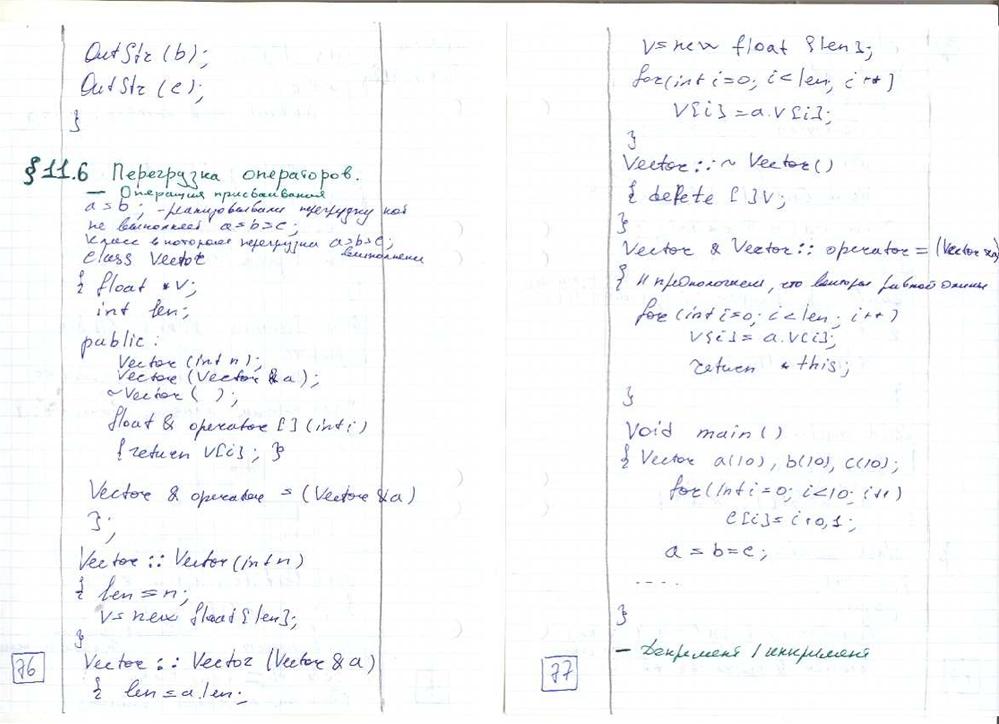 OutStr (b);
OutStr (c);
}
§ 11.6 Перегрузка операторов.
— Операция присваивания
a = b; - реализовывали перегрузку
не выполняет a=b=c;
класс в котором перегрузка a=b=c;
выполнени
class Vector
{ float * v;
int len;
public:
Vector (int n);
Vector (Vector & a);
~Vector ( );
float & operator [] (int i)
{return v[i]; }
Vector & operator = (Vector & a)
};
Vector :: Vector (int n)
{ len = n;
v = new float [len];
}
Vector :: Vector (Vector & a)
{ len = a.len;
76
v = new float [len];
for (int i=0; i<len, i++]
v[i] = a.v[i];
}
Vector :: ~ Vector ()
{ delete [] v;
}
Vector & Vector :: operator = (Vector &a)
{ // предположем, что вектора равной длины
for (int i=0; i<len; i++)
v[i] = a.v[i];
return * this;
}
Void main ()
{ Vector a(10), b(10), c(10);
for (int i=0; i<10; i++)
c[i] = i+0,1;
a = b = c;
. . . .
}
— Декремент / инкремент
77